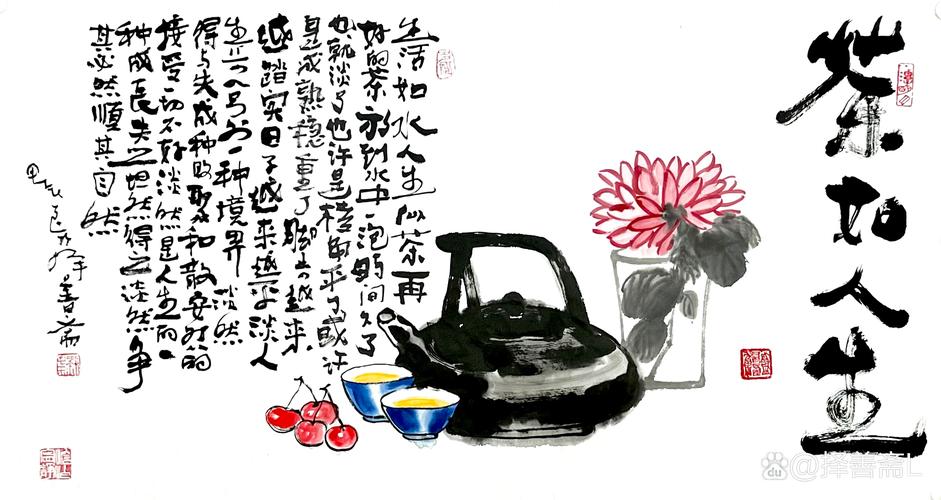 茶如人生
生活如水人生似茶再
好的茶放到水中一泡时间久了
也就淡了也许是棱角平了或许
是成熟稳重了脚步越来
越踏实日子越来越平淡人
生步入另外一种境界淡然
得与失成和败聚和散安好的
接受一切不好淡然是人生的一
种成长失之坦然得之淡然争
其必然顺其自然
择善斋
Bai度@择善斋L